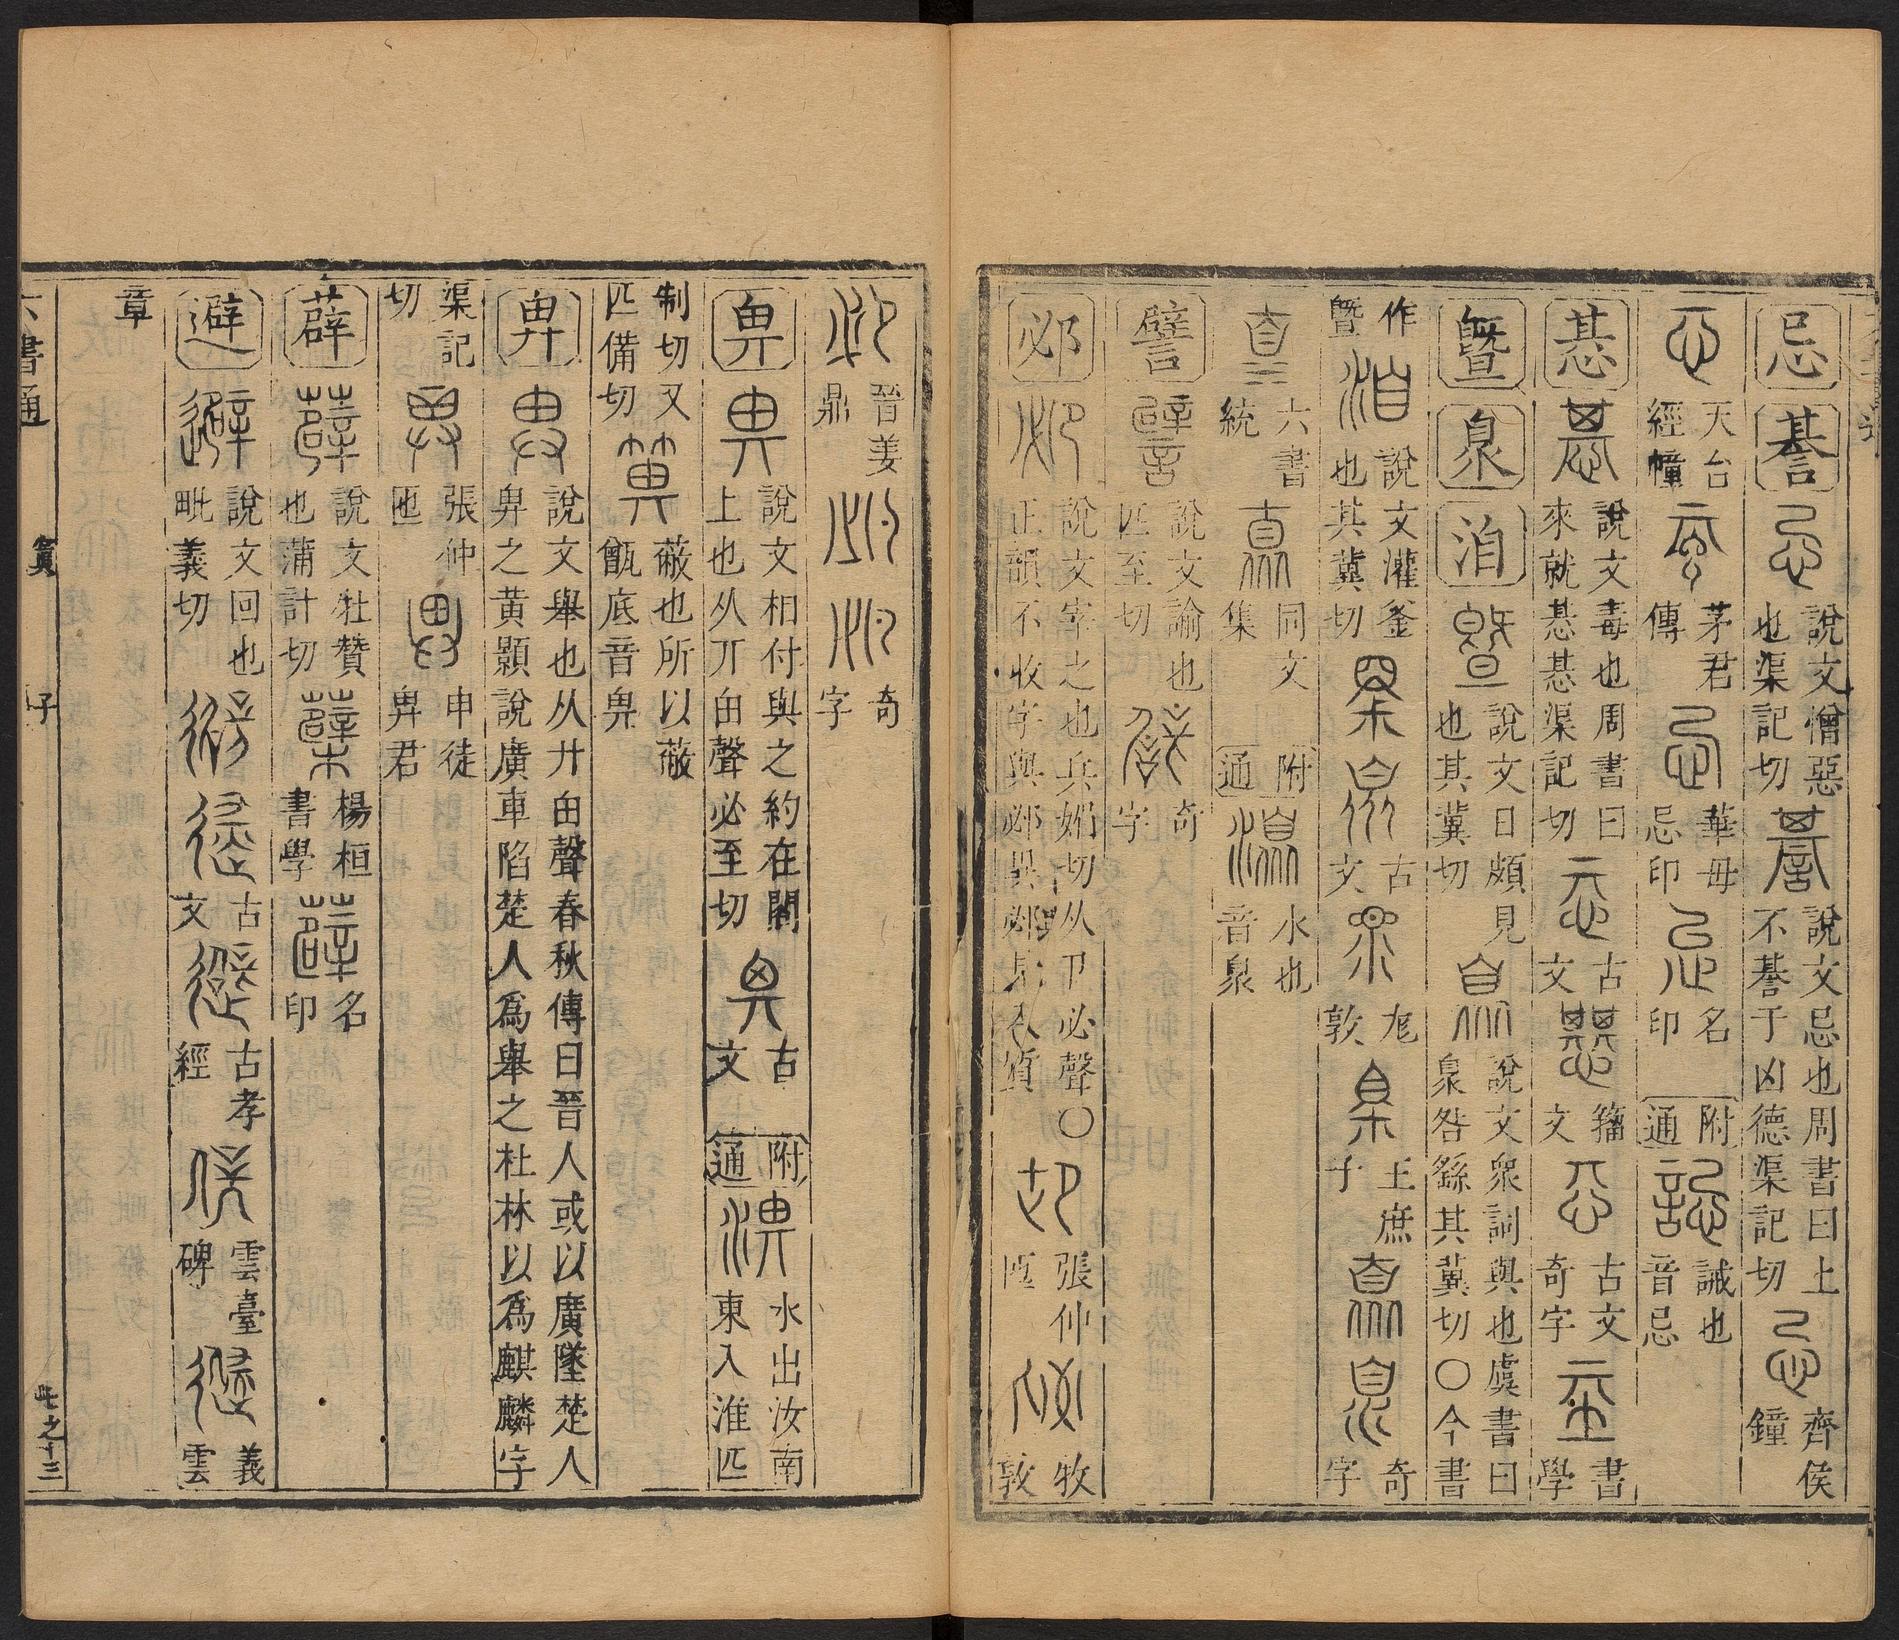 忌 諅 說文憎惡也渠記切 說文忌也周書曰上不諅于凶德渠記切 齊侯鐘
天台經幢 茅君傳 華毋忌印 名印 附通 誋 誡也音忌
惎 說文毒也周書曰來就惎惎渠記切 古文 籀文 古文奇字 書學
曁 臮 洎 說文日頗見也其冀切 說文衆詞與也虞書曰臮咎繇其冀切〇今書
作曁 說文灌釜也其冀切 古文 尨敦 王庶子 奇字
六書統 同文集 附通 水也音臮
譬 說文諭也匹至切 奇字
邲 說文宰之也兵媚切从卪必聲〇正韻不收字與邲異邲入質 張仲匜 牧敦
晉姜鼎 奇字
畀 說文相付與之約在閣上也从丌甶聲必至切 古文 附通 淠 水出汝南東入淮匹
制切又匹備切 箅 蔽也所以蔽甑底音畀
畁 說文舉也从廾甶聲春秋傳曰晉人或以廣墜楚人畁之黃顥說廣車陷楚人爲舉之杜林以爲麒麟字
渠記切 張仲匜 申徒畁君
薜 說文牡贊也蒲計切 楊桓書學 名印
避 說文回也毗義切 古文 古孝經 雲臺碑 義雲
章
六書通 寘 子 七之十三